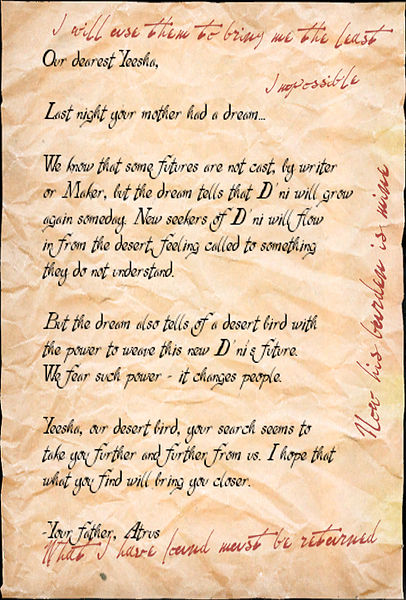 I will use them to bring me the least
Our dearest Yeesha,
Impossible
Last night your mother had a dream...
We know that some futures are not cast, by writer
or Maker, but the dream tells that D'ni will grow
again someday. New seekers of D'ni will flow
in from the desert, feeling called to something
they do not understand.
But the dream also tells of a desert bird with
the power to weave this new D'ni's future.
We fear such power - it changes people.
Yeesha, our desert bird, your search seems to
take you further and further from us. I hope that
what you find will bring you closer.
-Your father, Atrus
What I have found must be returned
Now his burden is mine